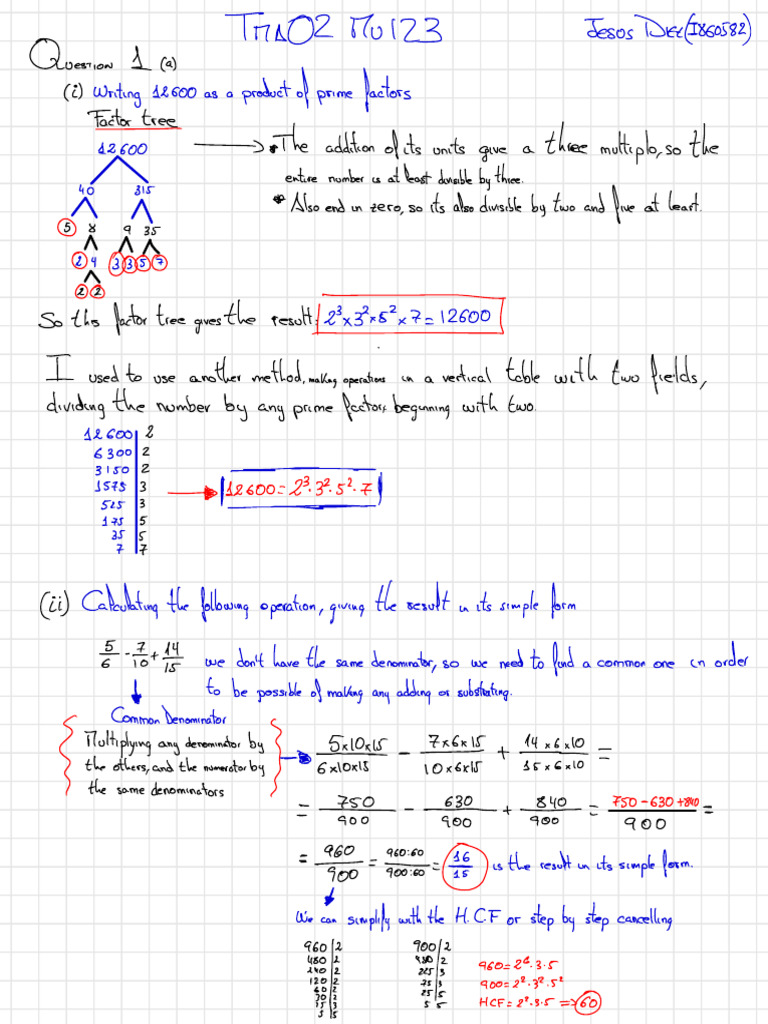 TMA02 MU123
Jesos Diez(I860582)
Question 1 (a)
(i) Writing 12600 as a product of prime factors
Factor tree
12600
40 315
5 8 9 35
2 4 3 3 5 7
2 2
• The addition of its units give a three multiplo, so the
entire number is at least divisible by three.
• Also end in zero, so its also divisible by two and five at least.
So this factor tree gives the result: 2³×3²×5²×7=12600
I used to use another method, making operations in a vertical table with two fields,
dividing the number by any prime factors beginning with two.
12600 2
6300 2
3150 2
1575 3
525 3
175 5
35 5
7 7
12600=2³·3²·5²·7
(ii) Calculating the following operation, giving the result in its simple form
5/6 - 7/10 + 14/15 we don't have the same denominator, so we need to find a common one in order
to be possible of making any adding or substrating.
Common Denominator
Multiplying any denominator by
the others, and the numerator by
the same denominators
5×10×15/6×10×15 - 7×6×15/10×6×15 + 14×6×10/15×6×10 =
= 750/900 - 630/900 + 840/900 = 750-630+840/900 =
= 960/900 = 960:60/900:60 = 16/15 is the result in its simple form.
We can simplify with the H.C.F or step by step cancelling
960 2
480 2
240 2
120 2
60 2
30 2
15 3
5 5
900 2
450 2
225 3
75 3
25 5
5 5
960=2⁶·3·5
900=2²·3²·5²
HCF=2²·3·5 => 60